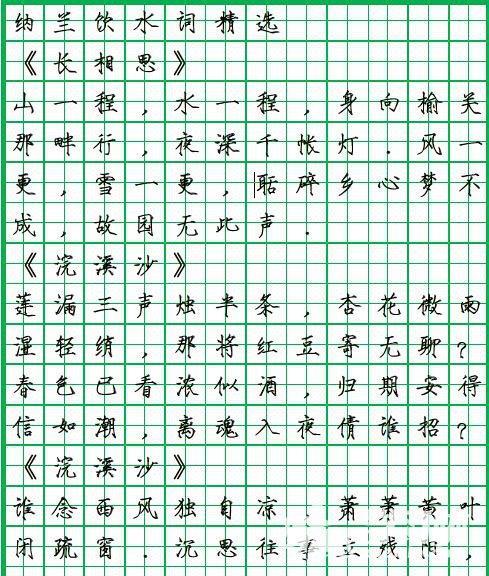 纳兰饮水词精选
《长相思》
山一程,水一程,身向榆关
那畔行,夜深千帐灯.风一
更,雪一更,聒碎乡心梦不
成,故园无此声.
《浣溪沙》
莲漏三声烛半条,杏花微雨
湿轻绡,那将红豆寄无聊?
春色已看浓似酒,归期安得
信如潮,离魂入夜倩谁招?
《浣溪沙》
谁念西风独自凉,萧萧黄叶
闭疏窗.沉思往事立残阳,